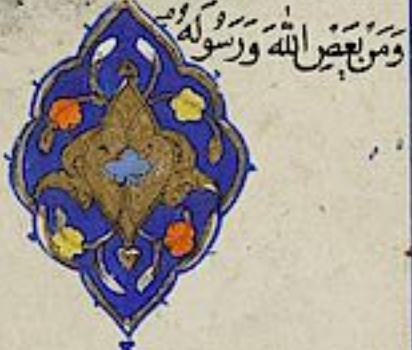 وَمَنْ يَعْصِ اللّٰهَ وَرَسُولَهُ